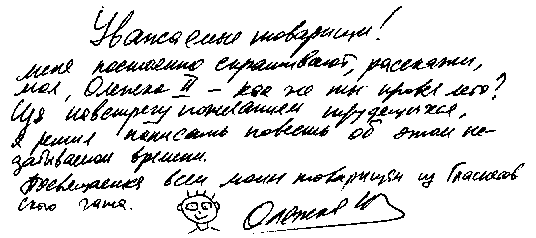 Уважаемые товарищи!
меня постоянно спрашивают, расскажи,
мол, Олежка II – как же ты провёл лето?
Идя навстречу пожеланиям трудящихся,
я решил написать повесть об этом не-
забываемом времени.
Посвящается всем моим товарищам из
ского чата.
Олежка II